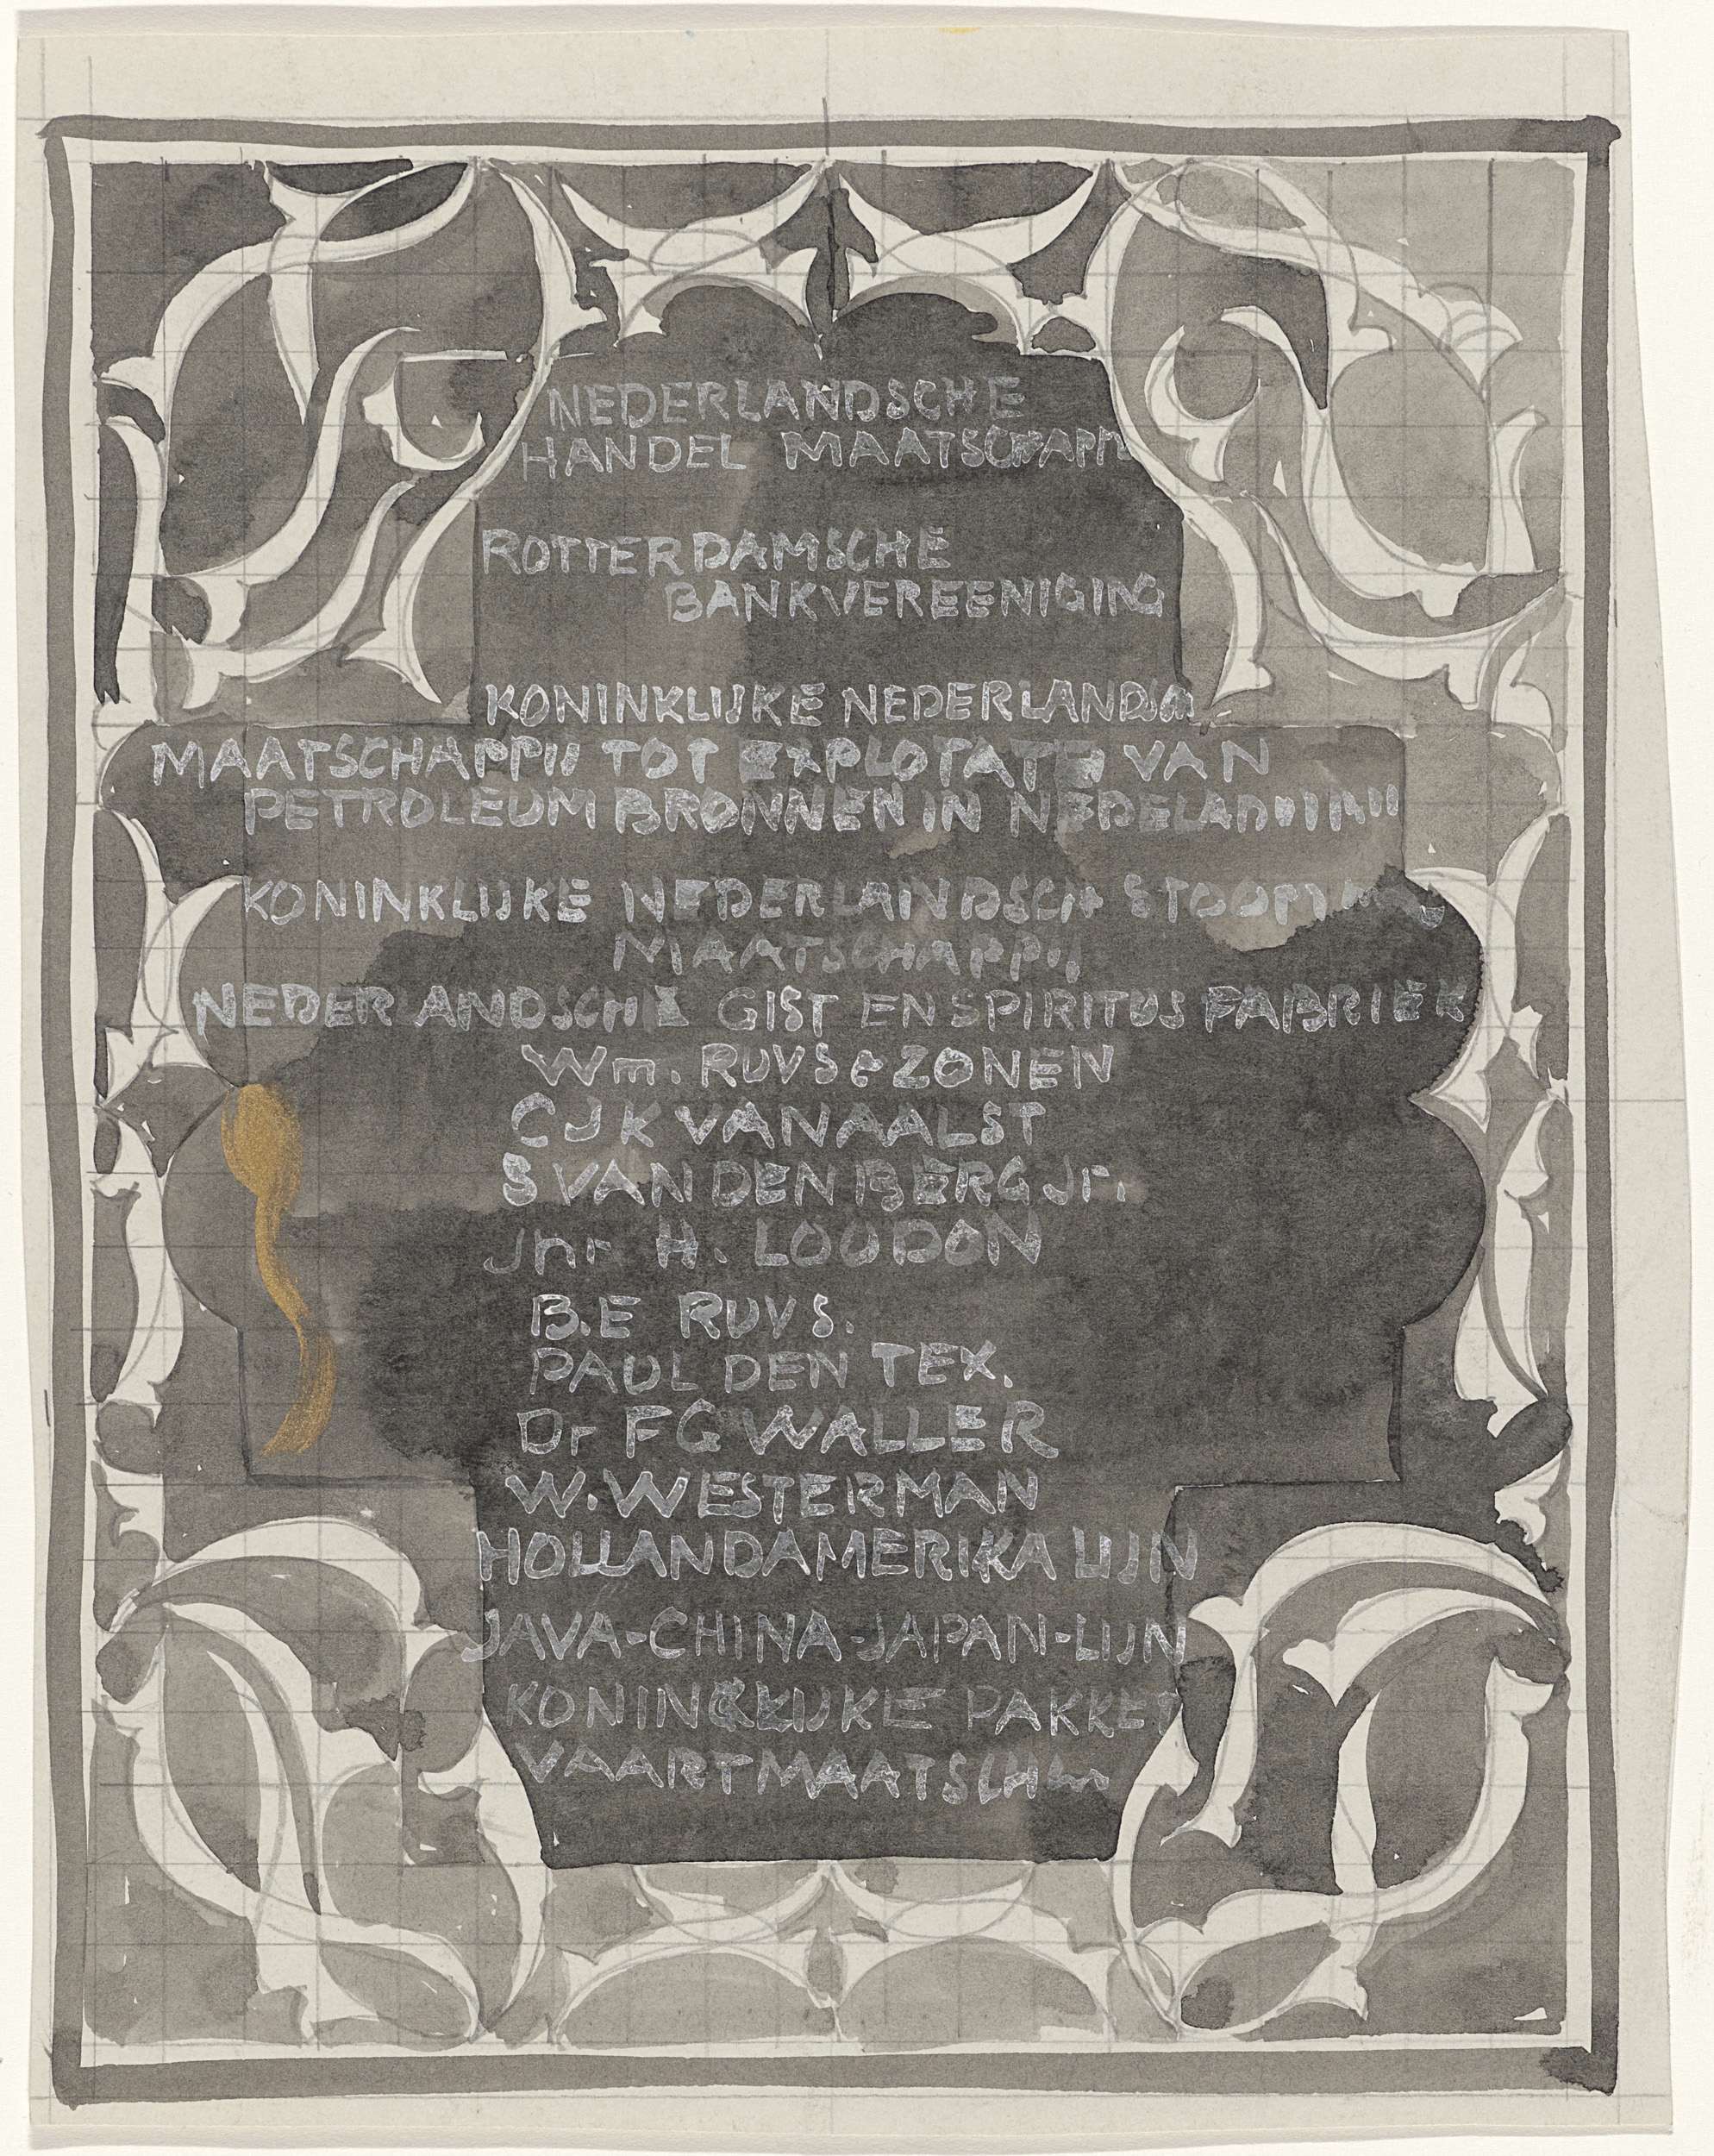 NEDERLANDSCHE
HANDEL MAATSCHAPPIJ
ROTTERDAMSCHE
BANKVEREENIGING
KONINKLIJKE NEDERLANDSCH
MAATSCHAPPIJ TOT EXPLOTATE VAN
PETROLEUM BRONNEN IN
KONINKLIJKE NEDERLANDSCH
MAATSCHAPPIJ
NEDERLANDSCHE GIST EN SPIRITUS FABRIEK
Wm. RUYS & ZONEN
C J K VAN AALST
S VAN DEN BERG Jr.
Jhr H. LOUDON
B.E RUYS.
PAUL DEN TEX.
Dr F G WALLER
W. WESTERMAN
HOLLANDAMERIKA LIJN
JAVA-CHINA-JAPAN-LIJN
KONINKLIJKE PAKKET
VAARTMAATSCH